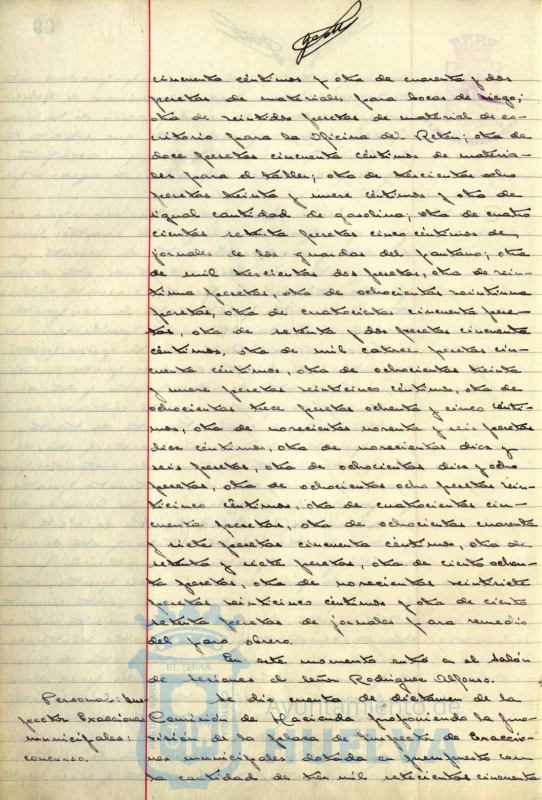 cincuenta céntimos y otra de cuarenta y dos
pesetas de materiales para bocas de riego;
otra de veintidos pesetas de material de es-
critorio para la Oficina de Reten; otra de
doce pesetas cincuenta céntimos de materia-
les para el taller; otra de trescientas ocho
pesetas treinta y nueve céntimos y otra de
igual cantidad de gasolina; otra de cuatro
cientas setenta pesetas cinco céntimos de
jornales de los guardas del pantano; otra
de mil trescientas dos pesetas, otra de vein-
tiuna pesetas, otra de ochocientas veintiuna
pesetas, otra de cuatrocientas cincuenta pese-
tas, otra de setenta y dos pesetas cincuenta
céntimos, otra de mil catorce pesetas cin-
cuenta céntimos, otra de ochocientas treinta
y nueve pesetas veinticinco céntimos, otra de
ochocientas trece pesetas ochenta y cinco cénti-
mos, otra de novecientas noventa y seis pesetas
diez céntimos, otra de novecientas diez y
seis pesetas, otra de ochocientas diez y ocho
pesetas, otra de ochocientas ocho pesetas vein-
ticinco céntimos, otra de cuatrocientas cin-
cuenta pesetas, otra de ochocientas cuarenta
y siete pesetas cincuenta céntimos, otra de
setenta y siete pesetas, otra de ciento ochen-
ta pesetas, otra de novecientas veintisiete
pesetas veinticinco céntimos y otra de ciento
setenta pesetas de jornales para remedio
del paro obrero.
En este momento entró en el salón
de sesiones el señor Rodriguez Alfonso.
Personal: Ins-
pector Exacciones
municipales:
concurso.
Se dio cuenta de dictamen de la
Comisión de Hacienda proponiendo la pro-
visión de la plaza de Inspector de Exaccio-
nes municipales dotada en presupuesto con
la cantidad de tres mil setecientas cincuenta
Ayuntamiento de
HUELVA